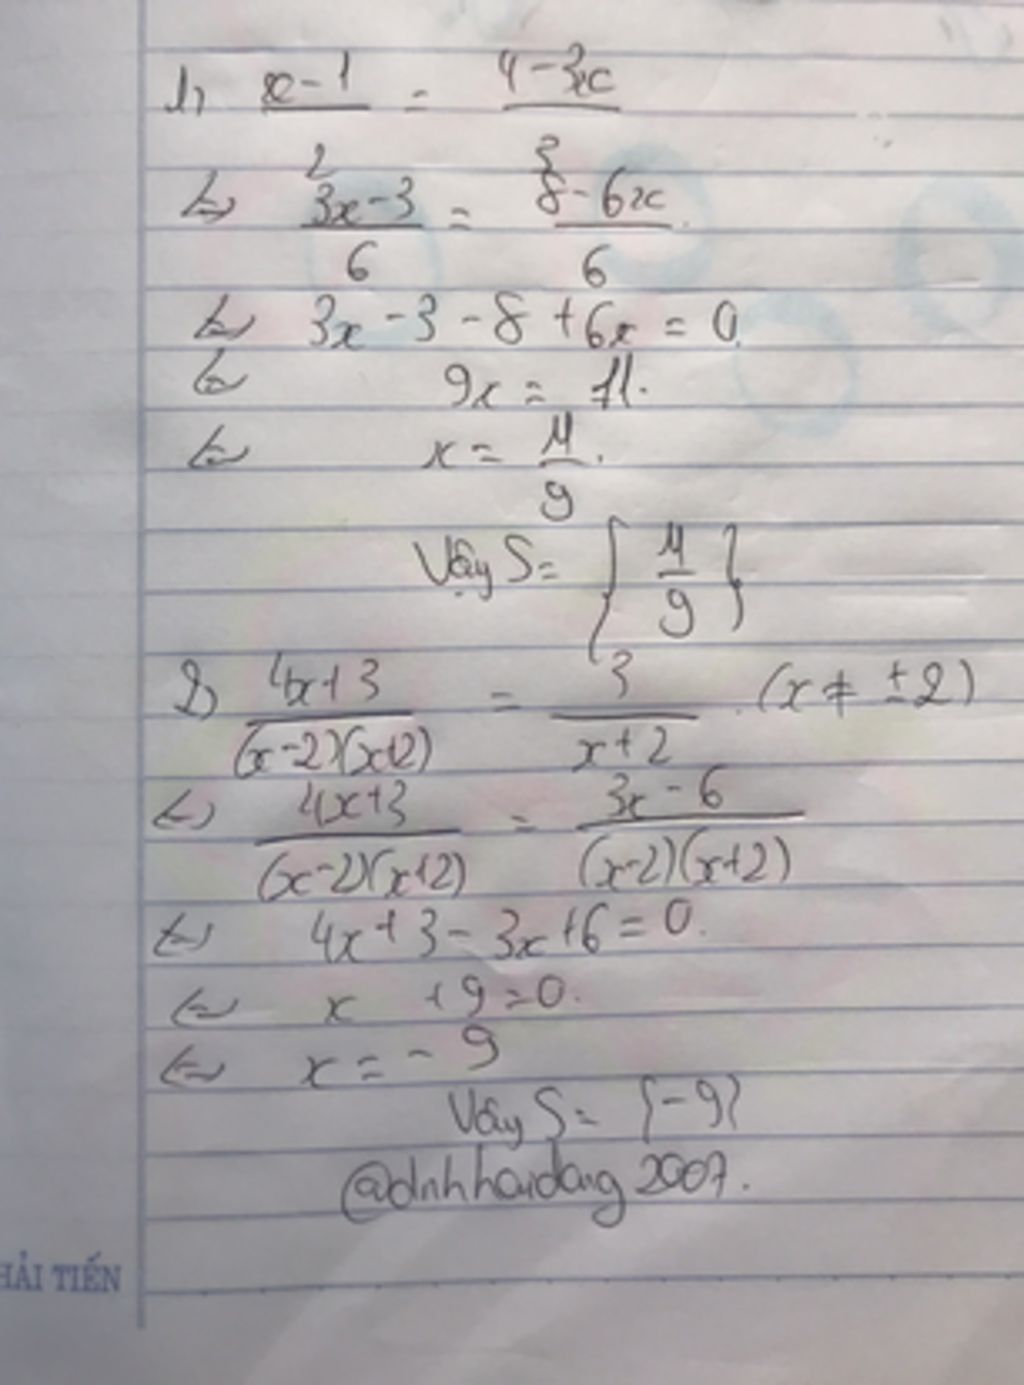 1, x-1/2 = 4-3x/3
<=> 3x-3/6 = 8-6x/6.
<=> 3x-3-8+6x=0.
<=> 9x = 11.
<=> x = 11/9.
Vậy S= {11/9}
2, 4x+3/(x-2)(x+2) = 3/x+2. (x ≠ ±2)
<=> 4x+3/(x-2)(x+2) = 3x-6/(x-2)(x+2)
<=> 4x+3-3x+6=0.
<=> x +9=0.
<=> x=-9
Vậy S= {-9}
@dnhhaidang2007.
HẢI TIẾN